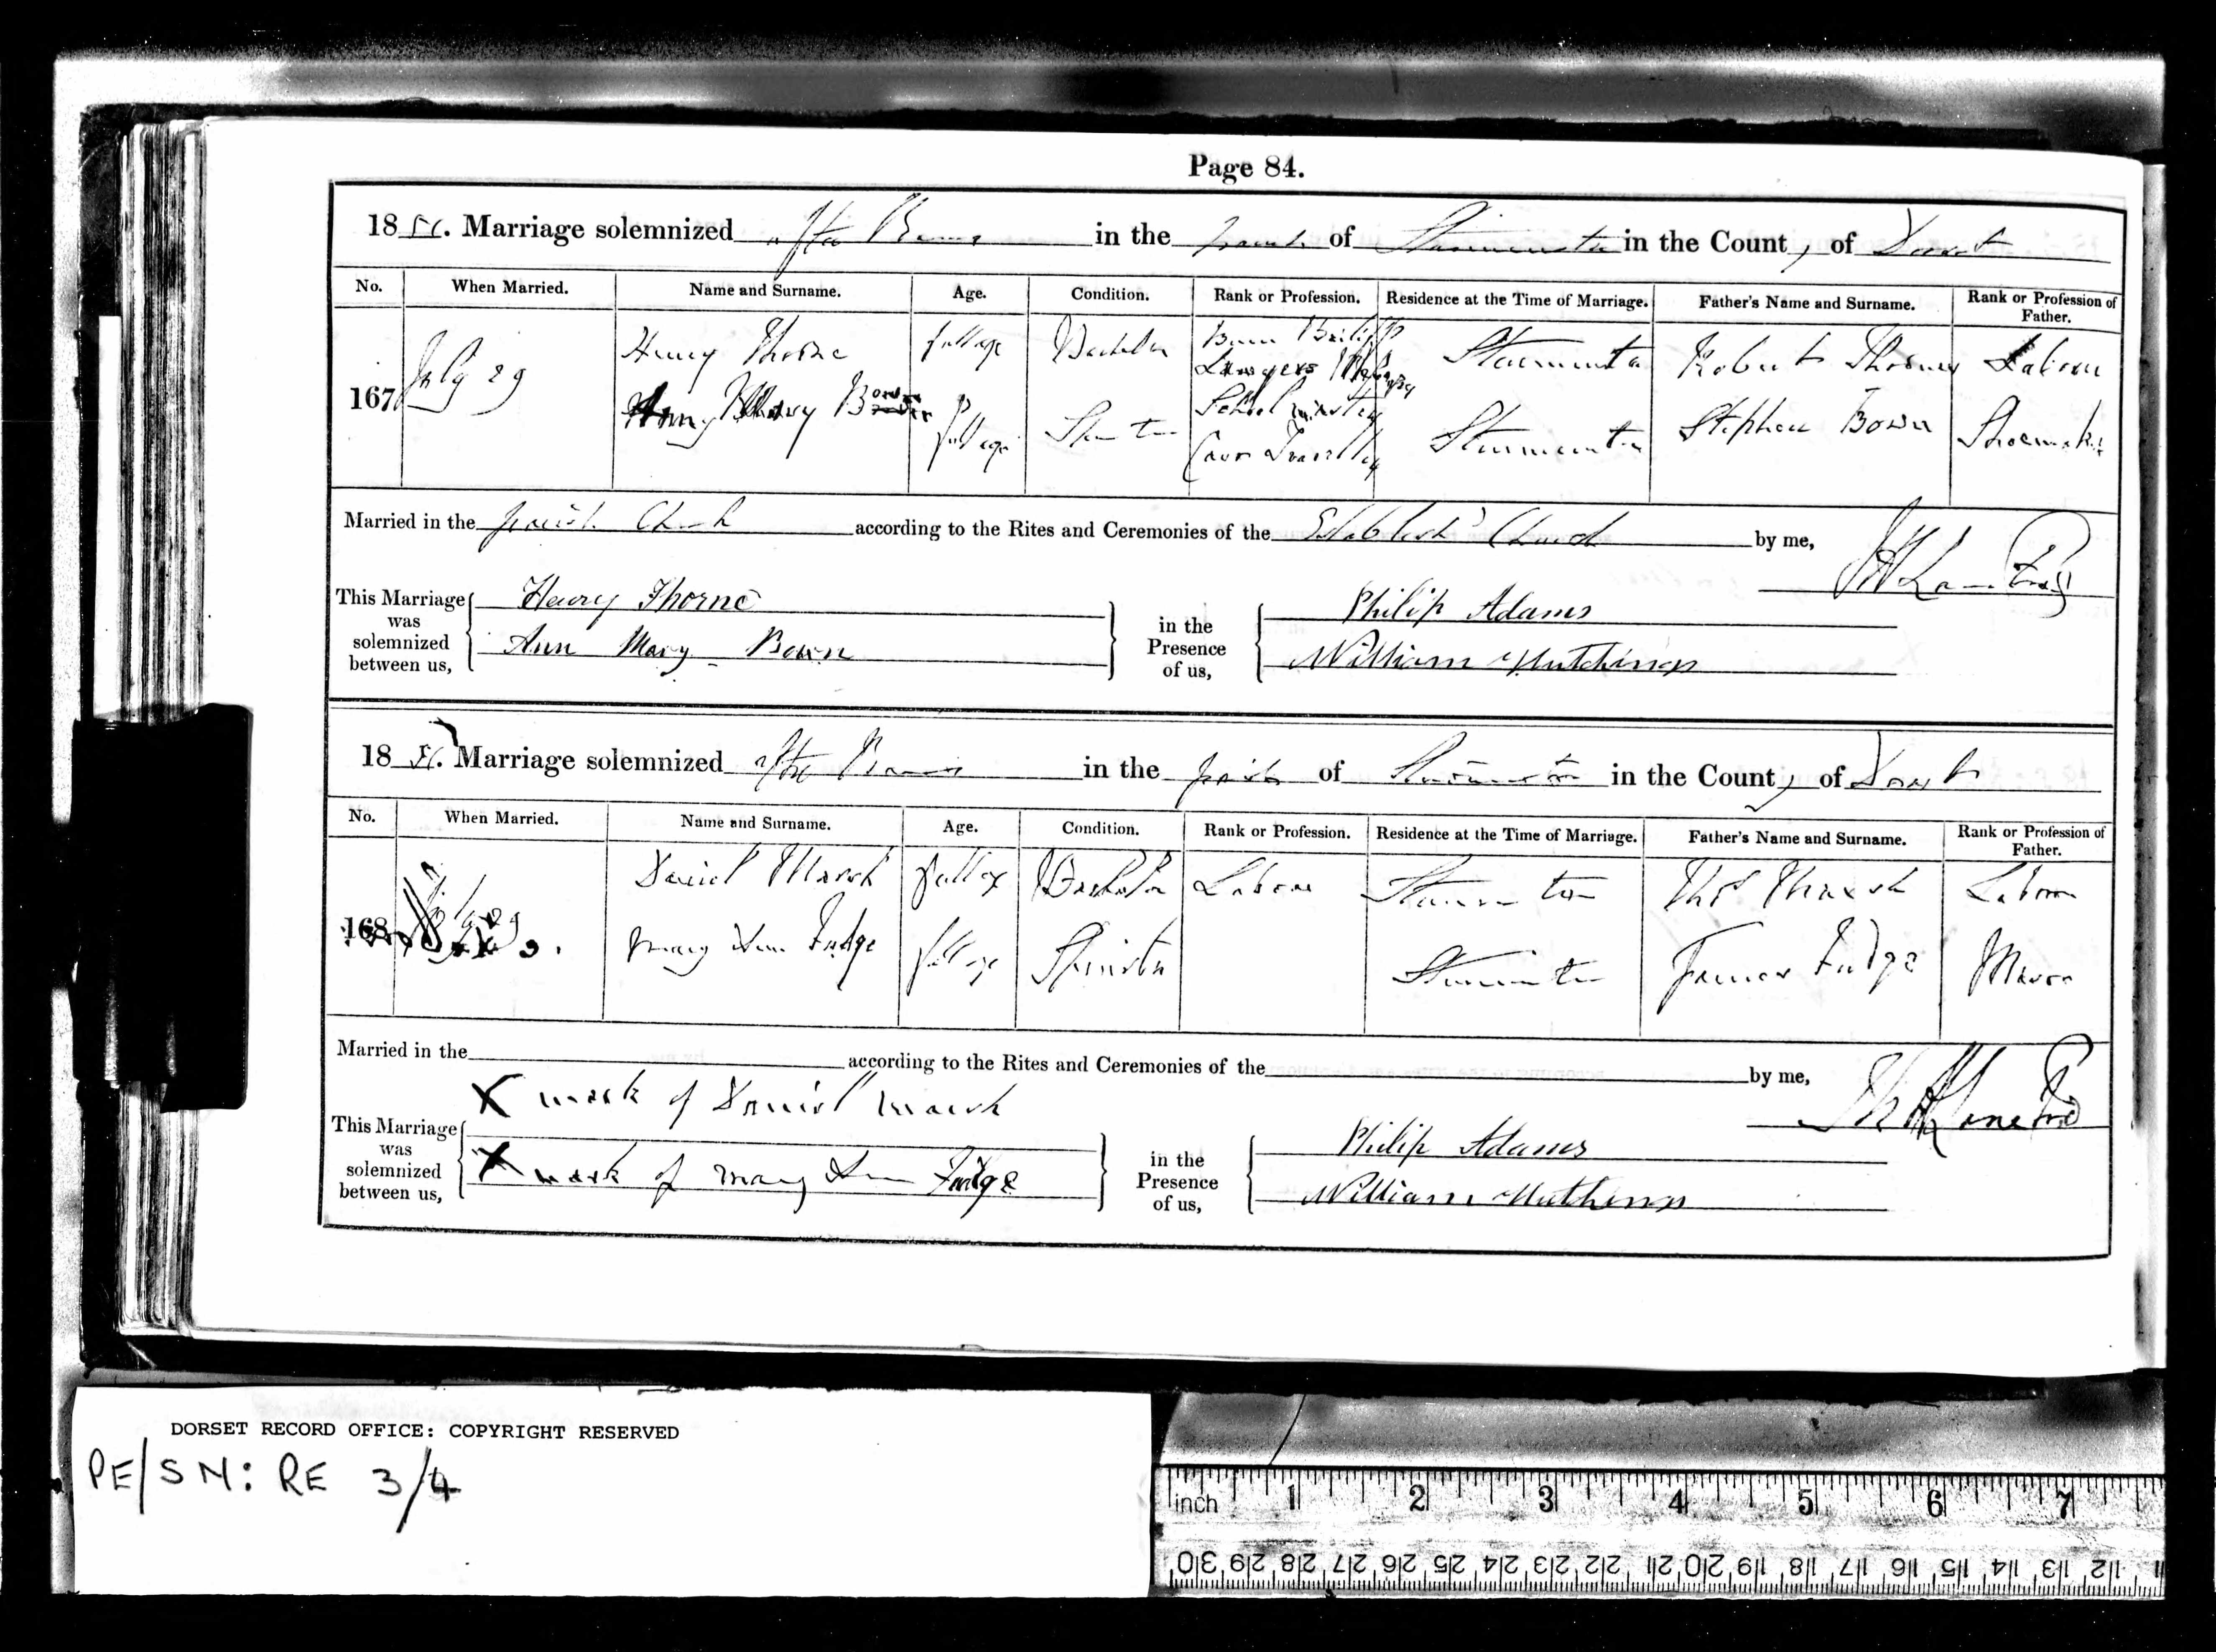 Page 84.
18 Marriage solemnized after Banns in the parish of Sturminster in the County of Dorset
No. When Married. Name and Surname. Age. Condition. Rank or Profession. Residence at the Time of Marriage. Father's Name and Surname. Rank or Profession of Father.
167 July 29 Henry Thorne full age Bachelor Bailiff Sturminster Robert Thorne Labourer
Mary Bown full age School Sturminster Stephen Bown Shoemaker
Married in the parish Church according to the Rites and Ceremonies of the Establish'd Church by me,
This Marriage was solemnized between us, Henry Thorne in the Presence of us, Philip Adams
Ann Mary Bown William Hutchings
18 Marriage solemnized after Banns in the parish of Sturminster in the County of Dorset
No. When Married. Name and Surname. Age. Condition. Rank or Profession. Residence at the Time of Marriage. Father's Name and Surname. Rank or Profession of Father.
168 July 29 Daniel Marsh full age Bachelor Labourer Sturminster Thos Marsh Labourer
Mary Ann Fudge full age Spinster Sturminster James Fudge Mason
Married in the according to the Rites and Ceremonies of the by me,
X mark of Daniel Marsh
This Marriage was solemnized between us, in the Presence of us, Philip Adams
X mark of Mary Ann Fudge William Hutchings
DORSET RECORD OFFICE: COPYRIGHT RESERVED
PE/SN: RE 3/4
inch 1 2 3 4 5 6 7
30 29 28 27 26 25 24 23 22 21 20 19 18 17 16 15 14 13 12